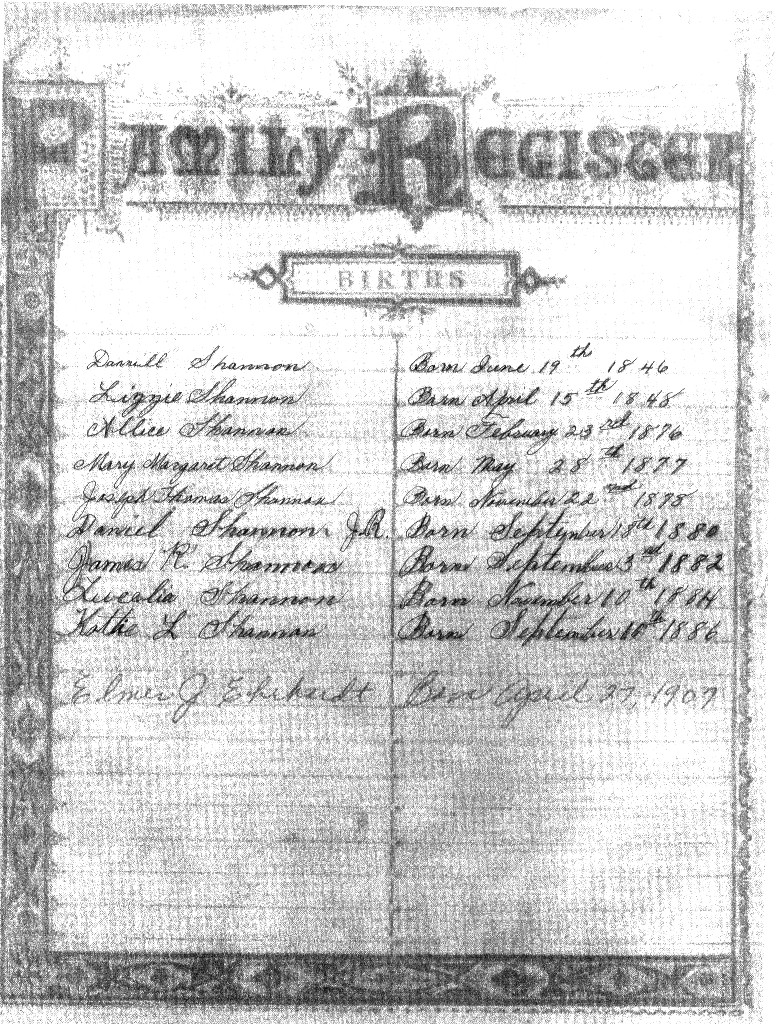 FAMILY REGISTER
BIRTHS
Daniell Shannon Born June 19th 1846
Lizzie Shannon Born April 15th 1848
Allice Shannon Born Febuary 23rd 1876
Mary Margaret Shannon Born May 28th 1877
Joseph Thomas Shannon Born November 22nd 1878
Daniel Shannon J.R. Born September 18th 1880
James R Shannon Born September 3rd 1882
Lucalia Shannon Born November 10th 1884
Kathie L Shannon Born September 10th 1886
Elmer J Ehrhardt Born April 27, 1907